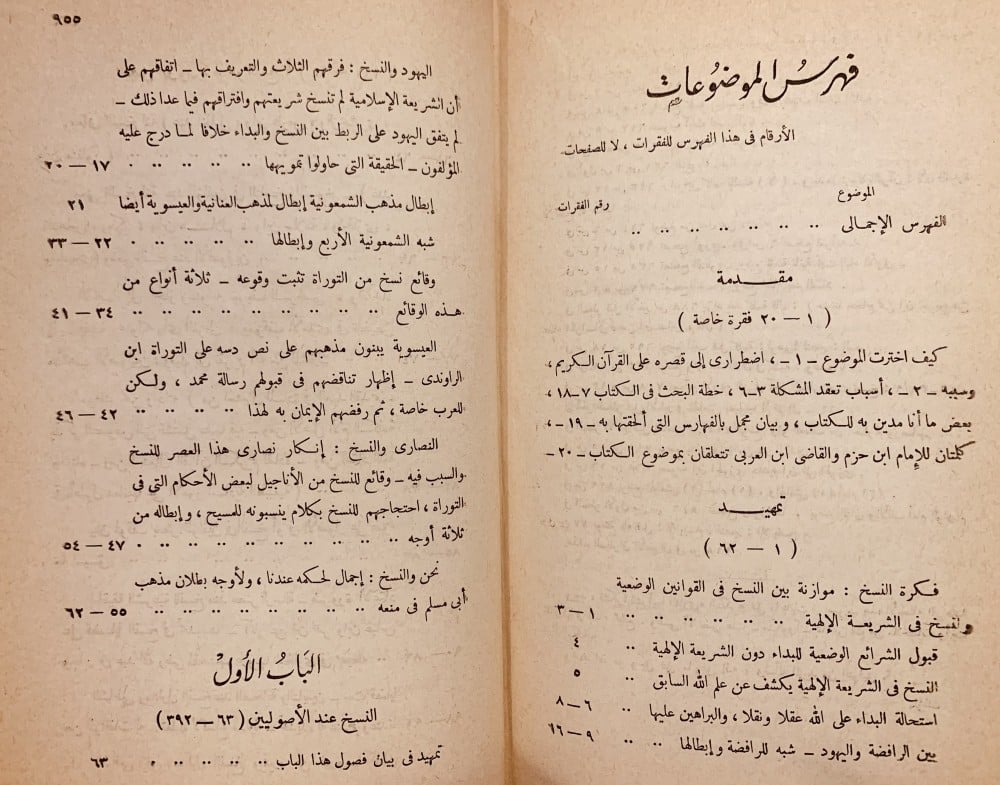 فهرس الموضوعات
الأرقام فى هذا الفهرس للفقرات ، لا للصفحات .
الموضوع
رقم الفقرات
الفهرس الإجمالى .. .. .. .. .. .. ..
مقدمة
( ١ — ٢٠ فقرة خاصة )
كيف اخترت الموضوع – ١ – ، اضطرارى إلى قصره على القرآن الكريم ،
وسببه – ٢ – ، أسباب تعقد المشكلة ٣–٦ ، خطة البحث فى الكتاب ٧–١٨ ،
بعض ما أنا مدين به للكتاب ، وبيان مجمل بالفهارس التى ألحقتها به – ١٩ – ،
كلمتان للإمام ابن حزم والقاضى ابن العربى تتعلقان بموضوع الكتاب – ٢٠ –
تمهيد
( ١ — ٦٢ )
فكرة النسخ : موازنة بين النسخ فى القوانين الوضعية
والنسخ فى الشريعة الإلهية .. .. .. .. .. .. ١ — ٣
قبول الشرائع الوضعية للبداء دون الشريعة الإلهية .. ٤
النسخ فى الشريعة الإلهية يكشف عن علم الله السابق .. ٥
استحالة البداء على الله عقلا ونقلا ، والبراهين عليها .. ٦ – ٨
بين الرافضة واليهود – شبه للرافضة وإبطالها .. .. ٩ – ١٦
٩٥٥
اليهود والنسخ : فرقهم الثلاث والتعريف بها – اتفاقهم على
أن الشريعة الإسلامية لم تنسخ شريعتهم وافتراقهم فيما عدا ذلك –
لم يتفق اليهود على الربط بين النسخ والبداء خلافا لما درج عليه
المؤلفون – الحقيقة التى حاولوا تمويهها .. .. .. .. .. ١٧ — ٢٠
إبطال مذهب الشمعونية إبطال لمذهب العنانية والعيسوية أيضا ٢١
شبه الشمعونية الأربع وإبطالها .. .. .. .. .. . ٢٢ — ٣٣
وقائع نسخ من التوراة تثبت وقوعه – ثلاثة أنواع من
هذه الوقائع .. .. .. .. .. .. .. .. .. ٣٤ — ٤١
العيسوية يبنون مذهبهم على نص دسه على التوراة ابن
الراوندى – إظهار تناقضهم فى قبولهم رسالة محمد ، ولكن
للعرب خاصة ، ثم رفضهم الإيمان به لهذا .. .. .. .. ٤٢ — ٤٦
النصارى والنسخ : إنكار نصارى هذا العصر للنسخ
والسبب فيه – وقائع للنسخ من الأناجيل لبعض الأحكام التى فى
التوراة ، احتجاجهم للنسخ بكلام ينسبونه للمسيح ، وإبطاله من
ثلاثة أوجه .. .. .. .. .. .. .. .. .. . ٤٧ — ٥٤
نحن والنسخ : إجمال لحكمه عندنا ، ولأوجه بطلان مذهب
أبى مسلم فى منعه .. .. .. .. .. .. .. .. ٥٥ — ٦٢
الباب الأول
النسخ عند الأصوليين ( ٦٣ — ٣٩٢ )
تمهيد فى بيان فصول هذا الباب .. .. .. .. .. . ٦٣